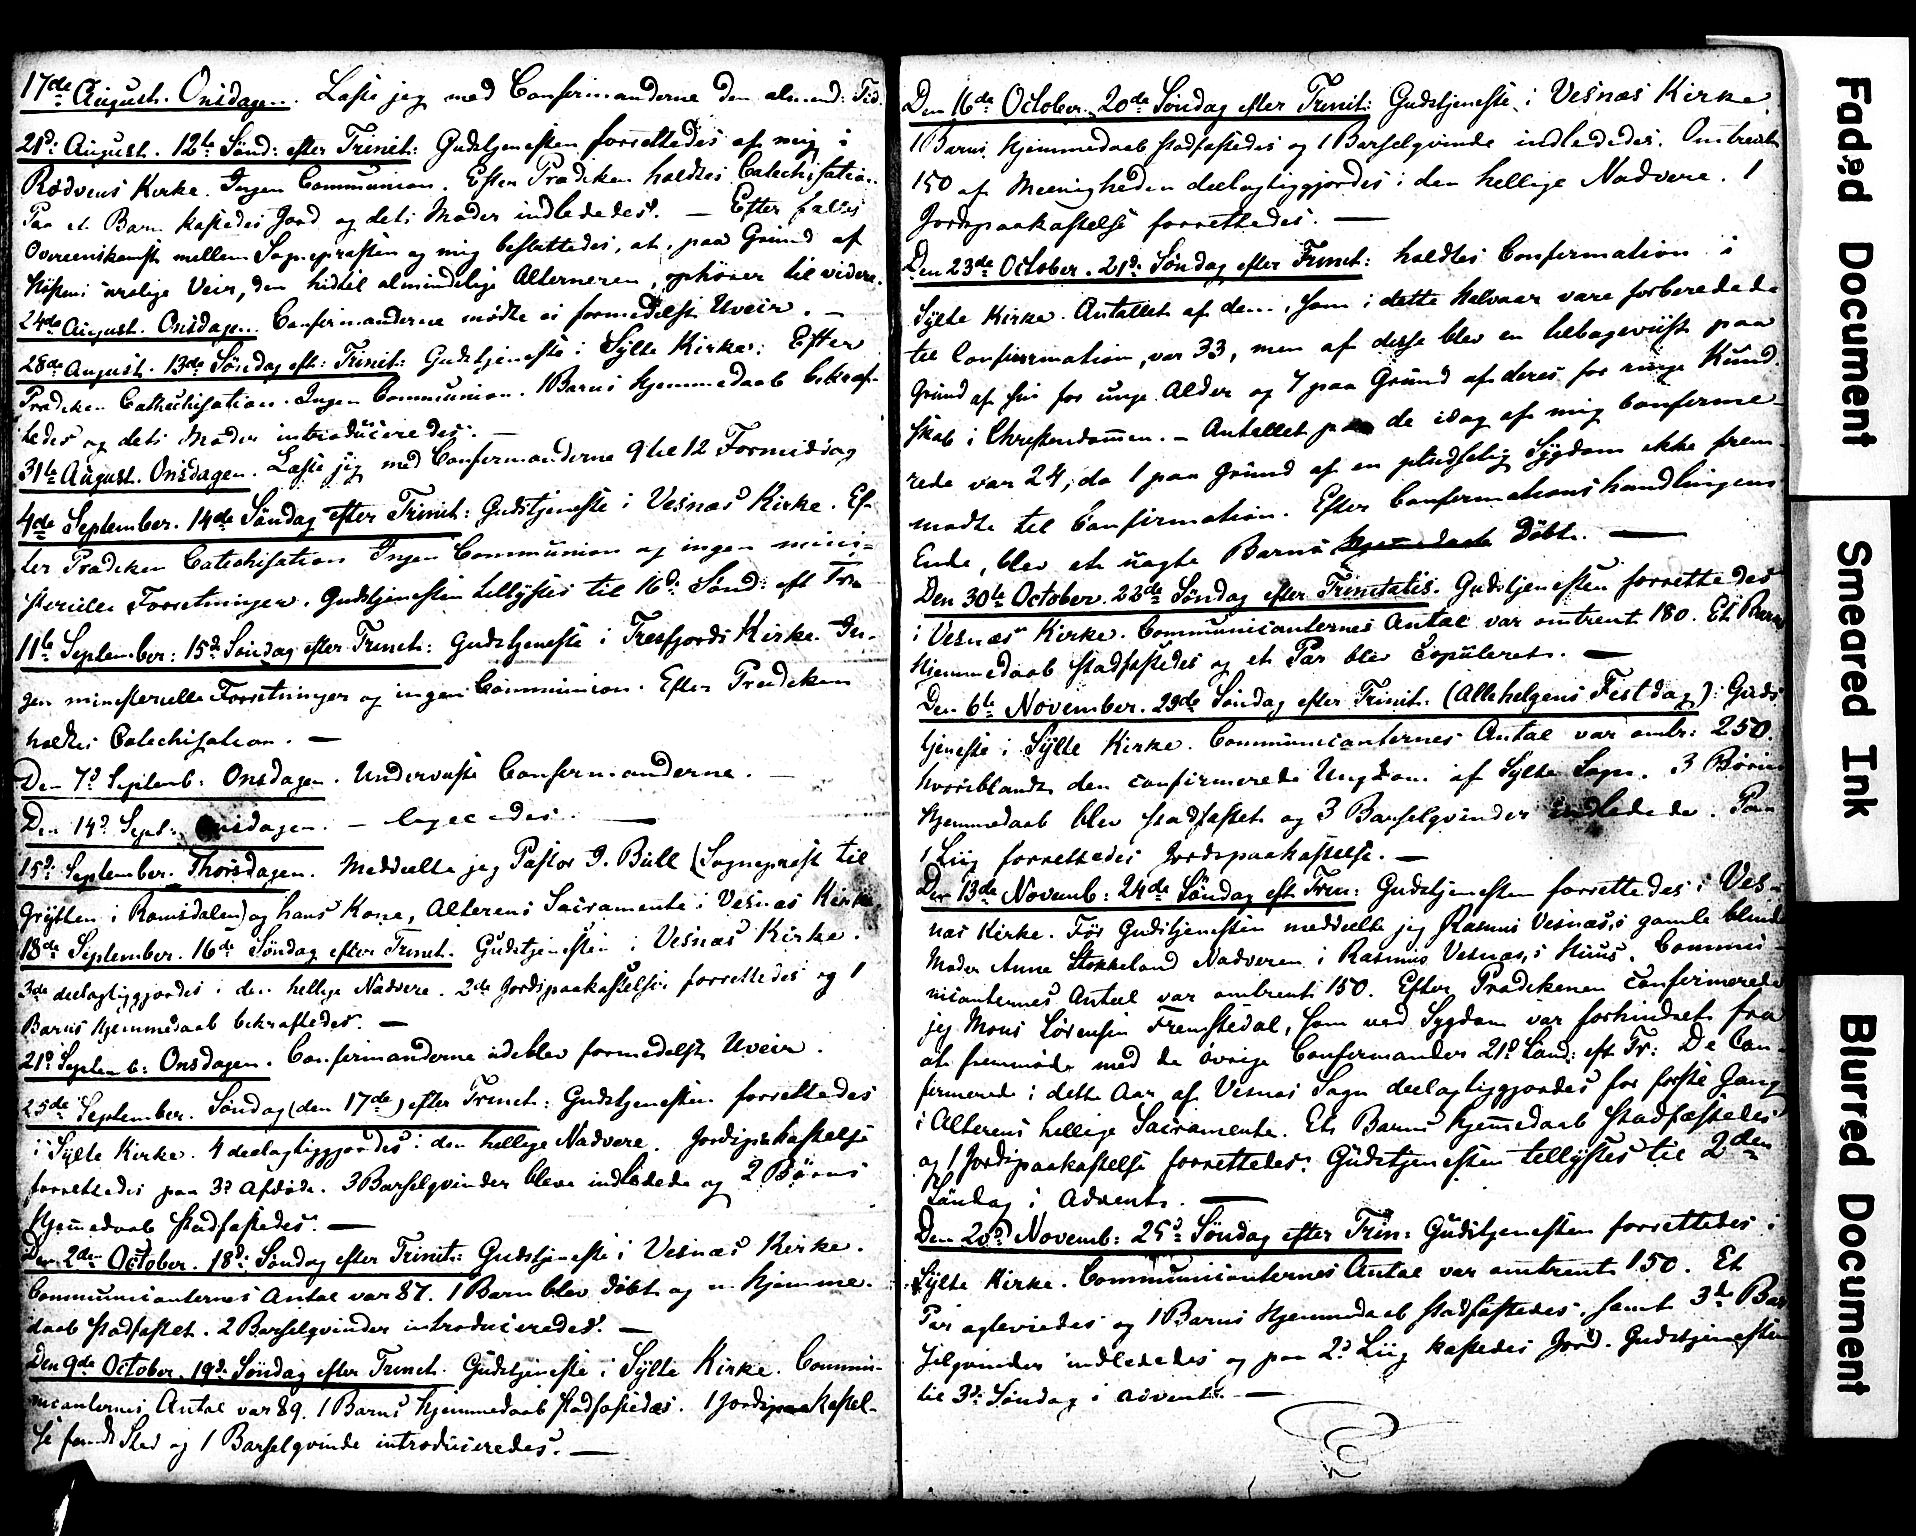 17de August. Onsdagen. Læste jeg med Confirmanderne den almind: Tid.
21d: August. 12te Sønd: efter Trinit: Gudstjenesten forrettedes af mig i
Rødvens Kirke. Ingen Communion. Efter Prædiken holdtes Catechisation.
Paa et Barn kastedes Jord og dets Moder indlededes. — Efter fælles
Overeenskomst mellem Sognepræsten og mig besluttedes, at, paa Grund af
Høstens urolige Veir, den hidtil almindelige Alterneren, ophører til videre.
24de August. Onsdagen. Confirmanderne mødte ei formedelst Uveir. —
28de August. 13de Søndag eft: Trinit: Gudstjeneste i Sylte Kirke: Efter
Prædiken Cathechisation. Ingen Communion. 1 Barns Hjemmedaab bekræf-
tedes og dets Moder introduceredes. —
31te August. Onsdagen. Læste jeg med Confirmanderne 9 til 12 Formiddag
4de September. 14de Søndag efter Trinit: Gudstjeneste i Vesnæs Kirke. Ef-
ter Prædiken Catechisation Ingen Communion og ingen mini-
sterielle Forretninger. Gudstjenesten tillystes til 16d: Sønd: eft Trin
11te September: 15d: Søndag efter Trinit: Gudstjeneste i Tresfjords Kirke. In-
gen ministerielle Forretninger og ingen Communion. Efter Prædiken
holdtes Catechisation. —
Den 7d Septemb: Onsdagen. Underviste Confirmanderne. —
Den 14d Sept: Onsdagen. — ligeledes. —
15d: September. Thorsdagen. Meddeelte jeg Pastor J. Bull (Sognepræst til
Grytten i Romsdalen) og hans Kone, Alterens Sacramente i Vesnæs Kirke
18de September. 16de Søndag efter Trinit. Gudstjenesten i Vesnæs Kirke.
3de deelagtiggjordes i den hellige Nadvere. 2de Jordspaakastelser forrettedes og 1
Barns Hjemmedaab bekræftedes. —
21d: Septemb: Onsdagen. Confirmanderne udeblev formedelst Uveir.
25de September. Søndag (den 17de) efter Trinit: Gudstjenesten forrettedes
i Sylte Kirke. 4 deelagtiggjordes i den hellige Nadvere. Jordspaakastelse
forrettedes paa 3d Afdøde. 3 Barselqvinder bleve indledede og 2 Børns
Hjemedaab stadfæstedes. —
Den 2den October. 18d: Søndag efter Trinit: Gudstjeneste i Vesnæs Kirke.
Communicanternes Antal var 87. 1 Barn blev døbt og en Hjemme-
daab stadfæstet. 2 Barselqvinder introduceredes. —
Den 9de October. 19d: Søndag efter Trinit. Gudstjeneste i Sylte Kirke. Commu-
nicanternes Antal var 89. 1 Barns Hjemmedaab stadfæstedes. 1 Jordspaakastel-
se fandt Sted og 1 Barselqvinde introduceredes. —
Den 16de October. 20de Søndag efter Trinit: Gudstjeneste i Vesnæs Kirke.
1 Barns Hjemmedaab stadfæstedes og 1 Barselqvinde indlededes. Omtrent
150 af Meenigheden deelagtiggjordes i den hellige Nadvere. 1
Jordspaakastelse forrettedes. —
Den 23de October. 21d: Søndag efter Trinit: holdtes Confirmation i
Sylte Kirke. Antallet af dem, som i dette Halvaar vare forberedede
til Confirmation, var 33, men af disse blev en tilbageviist paa
Grund af sin for unge Alder og 7 paa Grund af deres for ringe Kund-
skab i Christendommen. — Antallet paa de idag af mig Confirme-
rede var 24, da 1 paa Grund af en pludselig Sygdom ikke frem-
mødte til Confirmation. Efter Confirmationshandlingens
Ende, blev et uægte Barns Hjemmedaab døbt. —
Den 30te October. 22de Søndag efter Trinitatis. Gudstjenesten forrettedes
i Vesnæs Kirke. Communicanternes Antal var omtrent 180. Et Barns
Hjemmedaab stadfæstedes og et Par blev Copuleret. —
Den 6te November. 23de Søndag efter Trinit: (Allehelgens Festdag): Guds-
tjeneste i Sylte Kirke. Communicanternes Antal var omtr: 250.
hvoriblandt den confirmerede Ungdom af Sylte Sogn. 3 Børns
Hjemmedaab blev stadfæstet og 3 Barselqvinder indledede. Paa
1 Liig forrettedes Jordspaakastelse. —
Den 13de Novemb: 24de Søndag eft Trin: Gudstjenesten forrettedes i Ves-
næs Kirke. Før Gudstjenesten meddeelte jeg Rasmus Vesnæs's gamle blinde
Moder Anne Stokkeland Nadveren i Rasmus Vesnæs's Huus. Commu-
nicanternes Antal var omtrent 150. Efter Prædikenen confirmerede
jeg Mons Sørensen Fremstedal, som ved Sygdom var forhindret fra
at fremmøde med de øvrige Confirmander 21d Sønd: eft Tr: De Con-
firmerede i dette Aar af Vesnæs Sogn deelagtiggjordes for første Gang
i Alterens hellige Sacramente. Et Barns Hjemedaab stadfæstedes
og 1 Jordspaakastelse forrettedes. Gudstjenesten tillystes til 2den
Søndag i Advent. —
Den 20d Novemb: 25d: Søndag efter Trin: Gudstjenesten forrettedes i
Sylte Kirke. Communicanternes Antal var omtrent 150. Et
Par ægteviedes og 1 Barns Hjemmedaab stadfæstedes, samt 3de Bar-
selqvinder indlededes og paa 2d Liig kastedes Jord. Gudstjenesten
til 3d: Søndag i Advent. —
Faded Document
Smeared Ink
Blurred Document